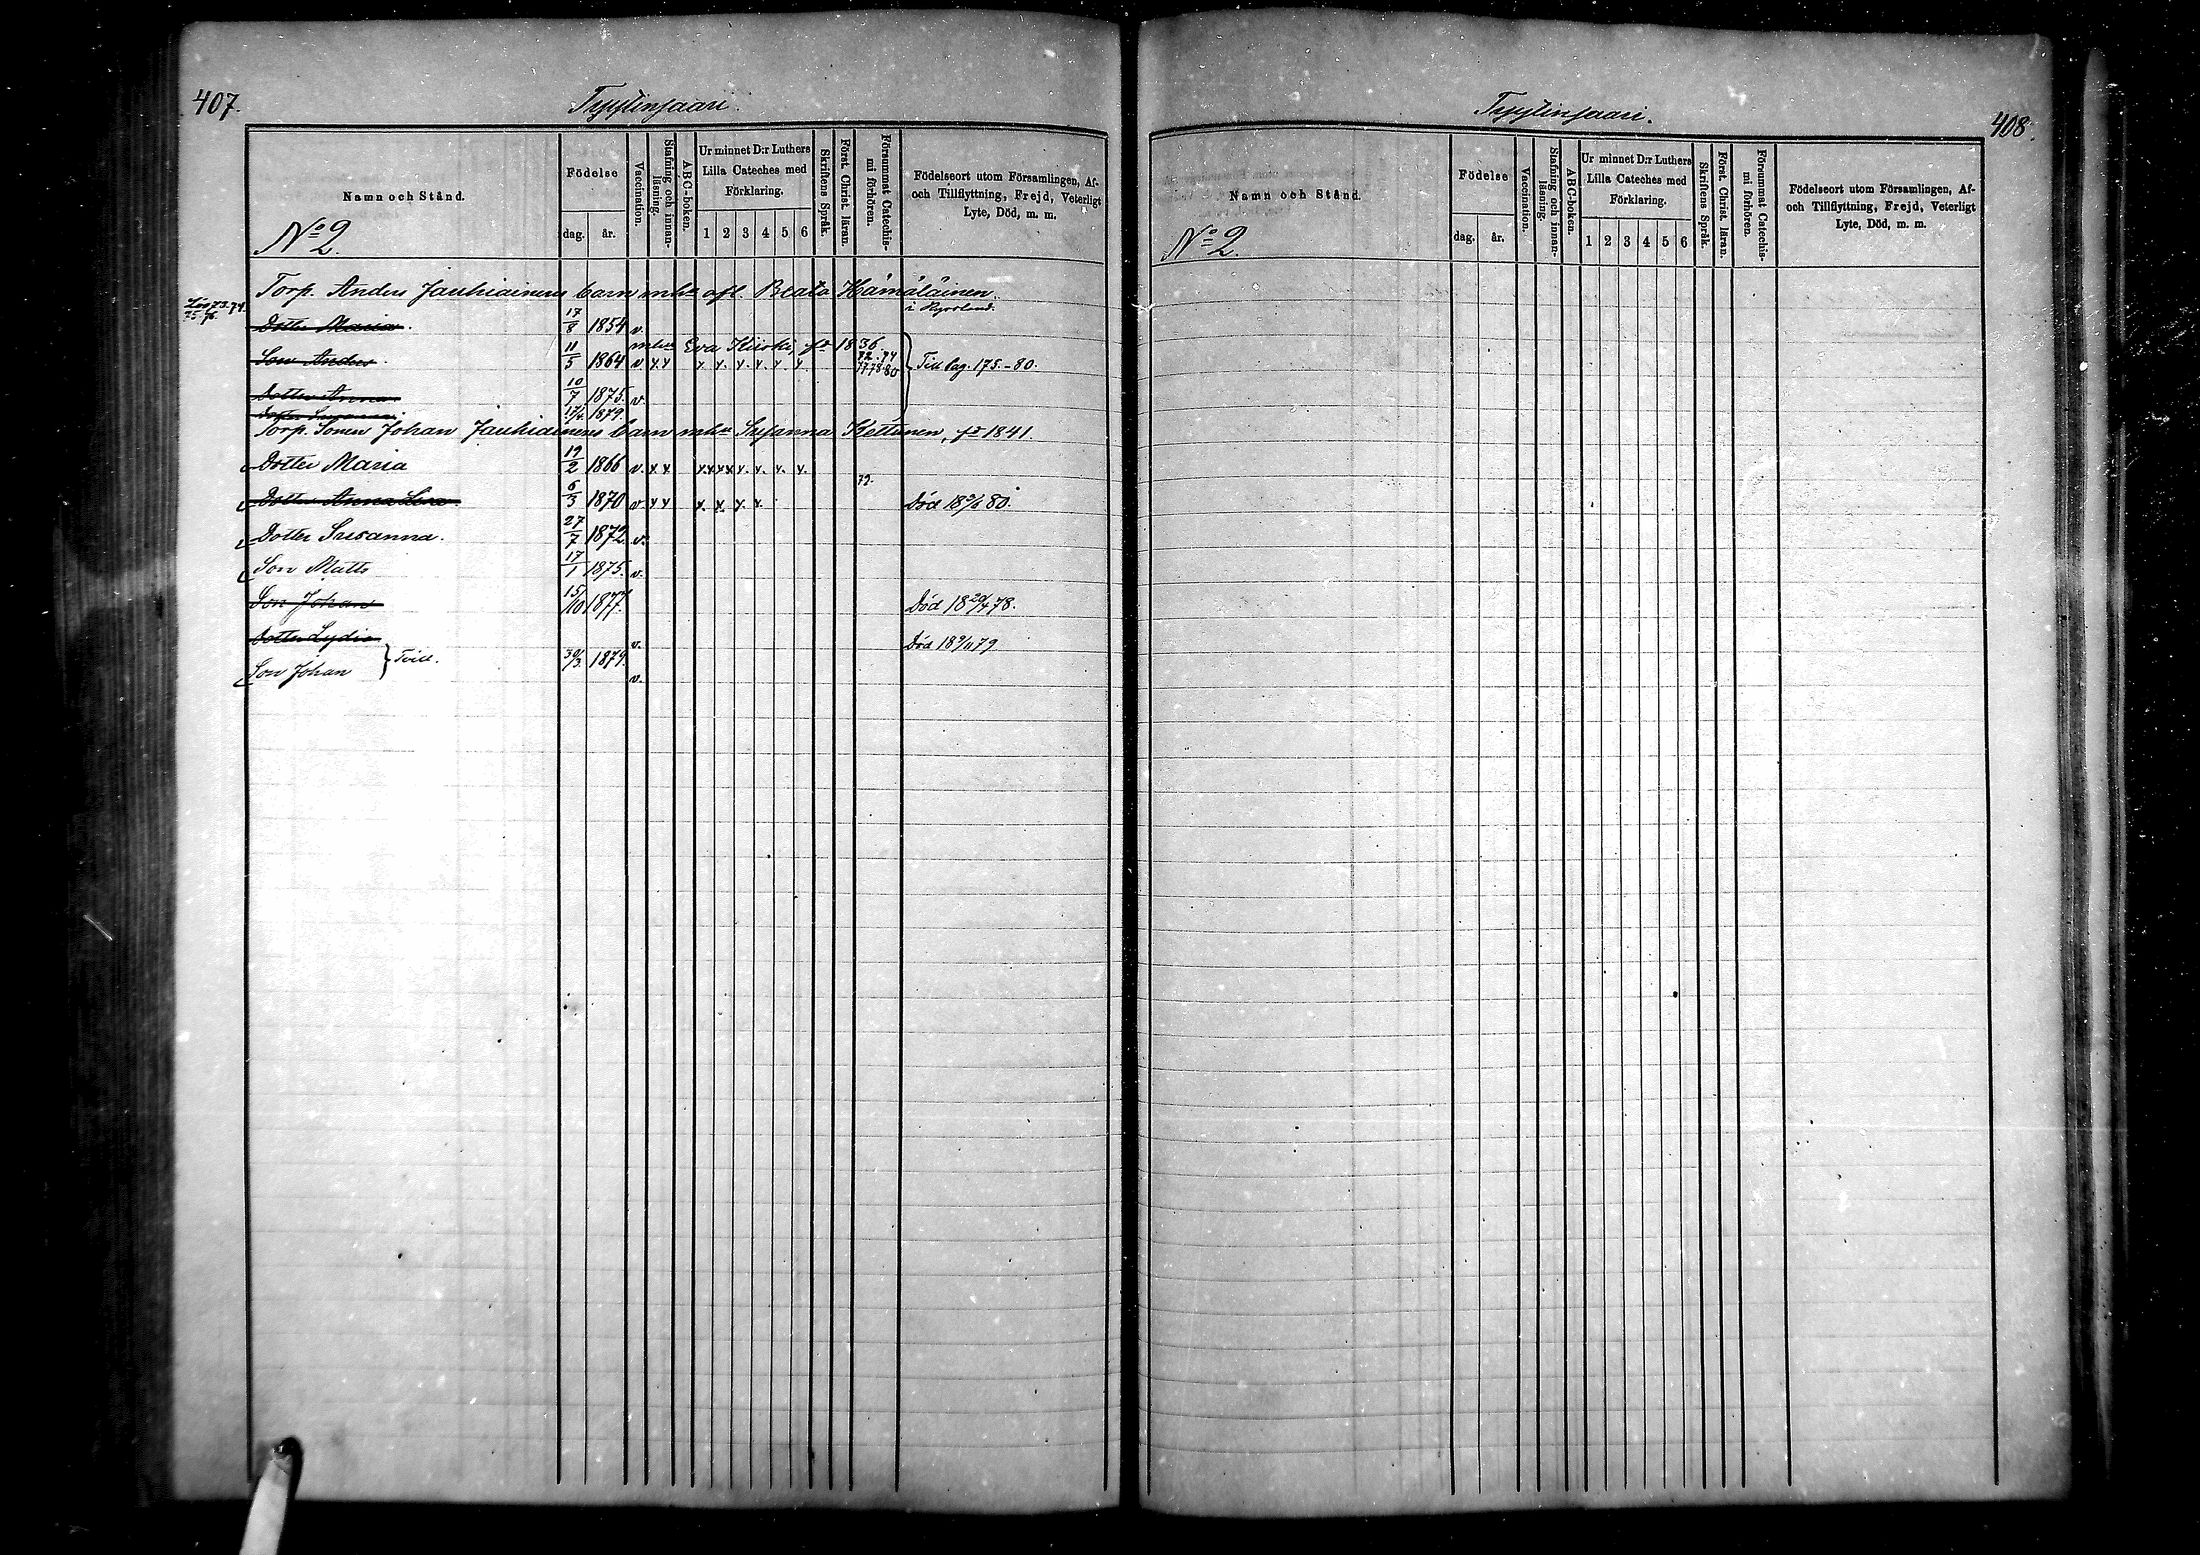 407.
Namn och Stånd.
Födelse
dag.
år.
Vaccination.
Stafning och innanläsning.
ABC-boken.
Ur minnet D:r Luthers
Lilla Cateches med
Förklaring.
1 2 3 4 5 6
Skriftens Språk.
Först. Christ. läran.
Försummat Catechismi förhören.
Födelseort utom Församlingen, Af-
och Tillflyttning, Frejd, Veterligt
Lyte, Död, m. m.
No 2.
Torp. Anders Jauhiainens barn mhu afl. Beata Hämäläinen.
Dotter Maria. 17/8 1854 v.
mhu Eva Kiiski, fd 1836
Son Anders. 11/5 1864 v x x x x. x. x. x x 72. 74 77 78. 80 Till pag. 175.-80.
Dotter Anna 10/7 1875. v.
Dotter Susanna 17/4. 1879.
Torp. Sonen Johan Jauhiainens barn mhu Susanna Kettunen, fd 1841.
Dotter Maria 19/2 1866 v. x x x x x x x. x. x. x.
79.
Dotter Anna Lisa 6/3 1870 v x x x. x. x x. Död 80.
Dotter Susanna. 27/7 1872. v.
Son Matts 17/1 1875. v.
Son Johan 15/10 1877. Död 18 20/4 78.
Dotter Lydia v. Död 18 9/11 79
Son Johan } Tvill. 30/3. 1879. v.
408.
Namn och Stånd.
Födelse
dag.
år.
Vaccination.
Stafning och innanläsning.
ABC-boken.
Ur minnet D:r Luthers
Lilla Cateches med
Förklaring.
1 2 3 4 5 6
Skriftens Språk.
Först. Christ. läran.
Försummat Catechismi förhören.
Födelseort utom Församlingen, Af-
och Tillflyttning, Frejd, Veterligt
Lyte, Död, m. m.
No 2.